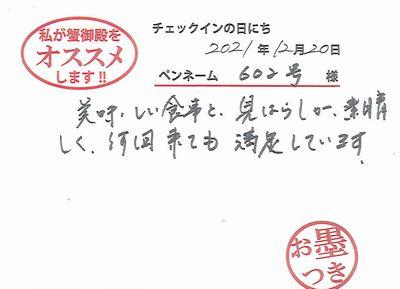 私が蟹御殿を
オススメ
します!!
チェックインの日にち
2021年12月20日
ペンネーム 602号 様
美味しい食事と、見はらしが、素晴
しく、何回来ても満足しています
お墨
つき